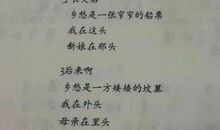 乡愁是一张窄窄的船票
我在这头
新娘在那头
3后来啊
乡愁是一方矮矮的坟墓
我在外头
母亲在里头